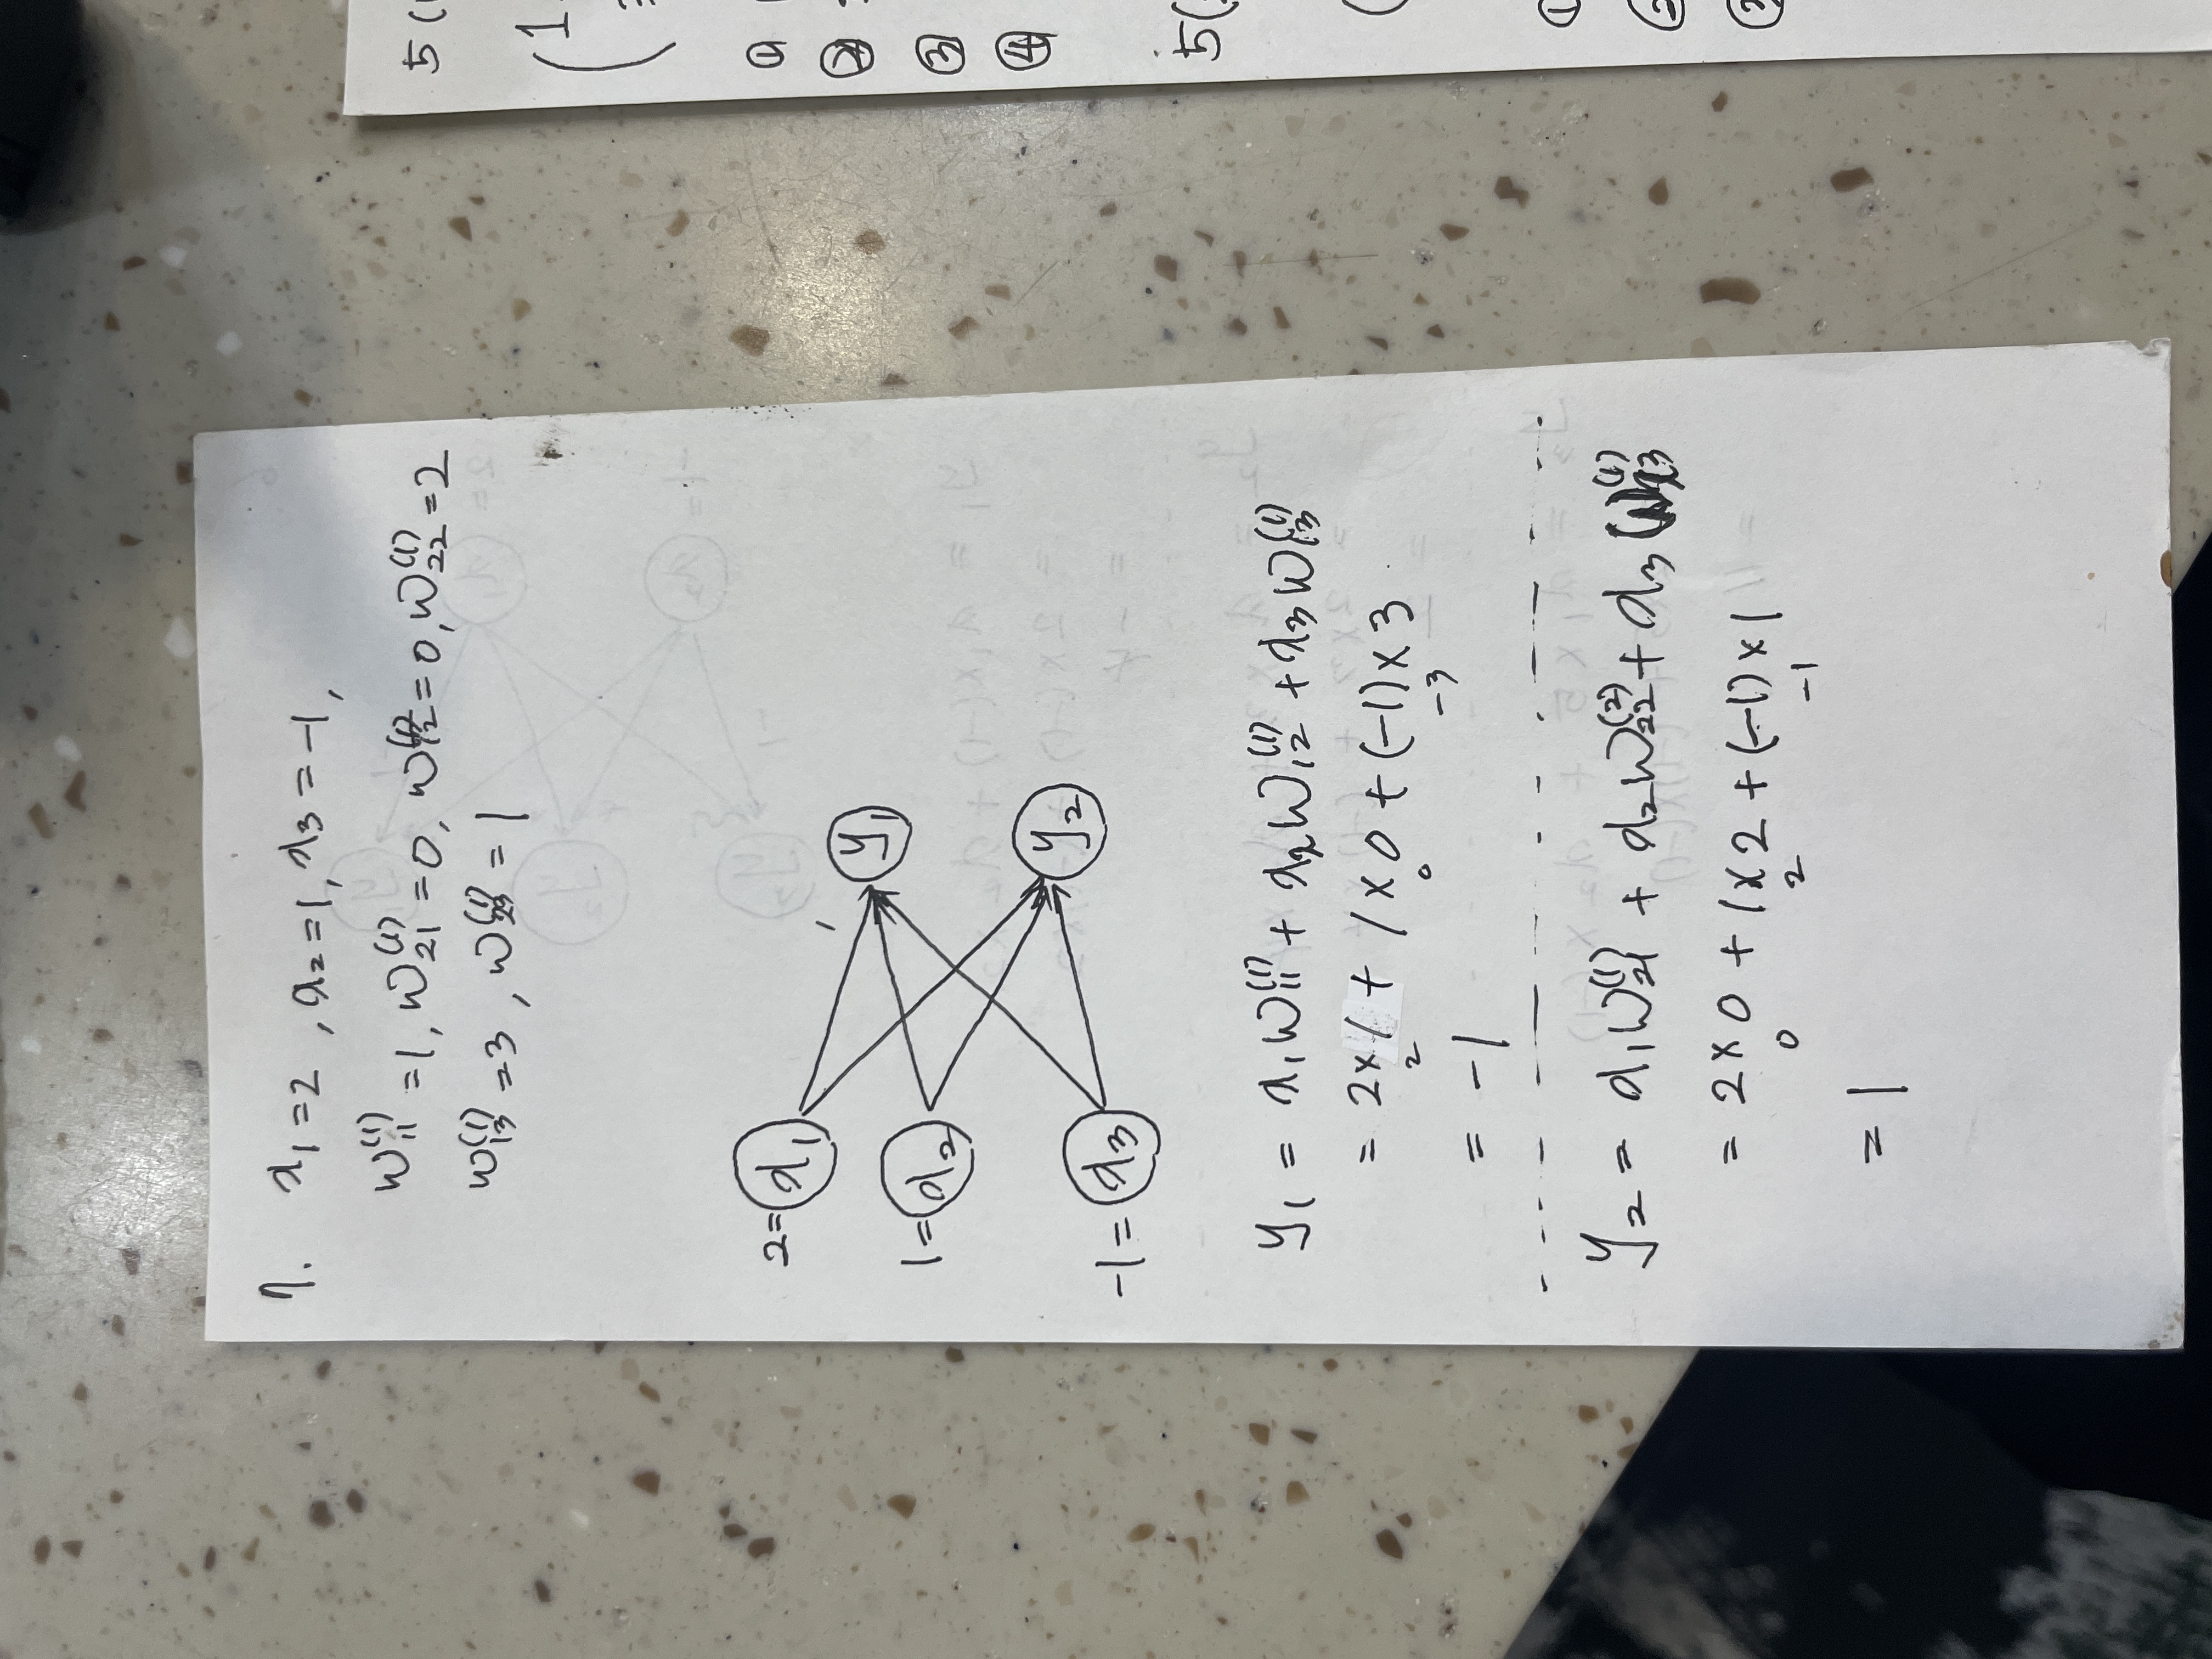 7. x₁=2, x₂=1, x₃=-1,
w₁₁⁽¹⁾=1, w₂₁⁽¹⁾=0, w₁₂⁽¹⁾=0, w₂₂⁽¹⁾=2
w₁₃⁽¹⁾=3, w₂₃⁽¹⁾=1
2= x₁
y₁
1= x₂
y₂
-1= x₃
y₁ = x₁w₁₁⁽¹⁾ + x₂w₁₂⁽¹⁾ + x₃w₁₃⁽¹⁾
= 2×1 + 1×0 + (-1)×3
2 0 -3
= -1
y₂ = x₁w₂₁⁽¹⁾ + x₂w₂₂⁽²⁾ + x₃w₂₃⁽¹⁾
= 2×0 + 1×2 + (-1)×1
0 2 -1
= 1
5(
(1
①
②
③
④
5(
(
①
②
③